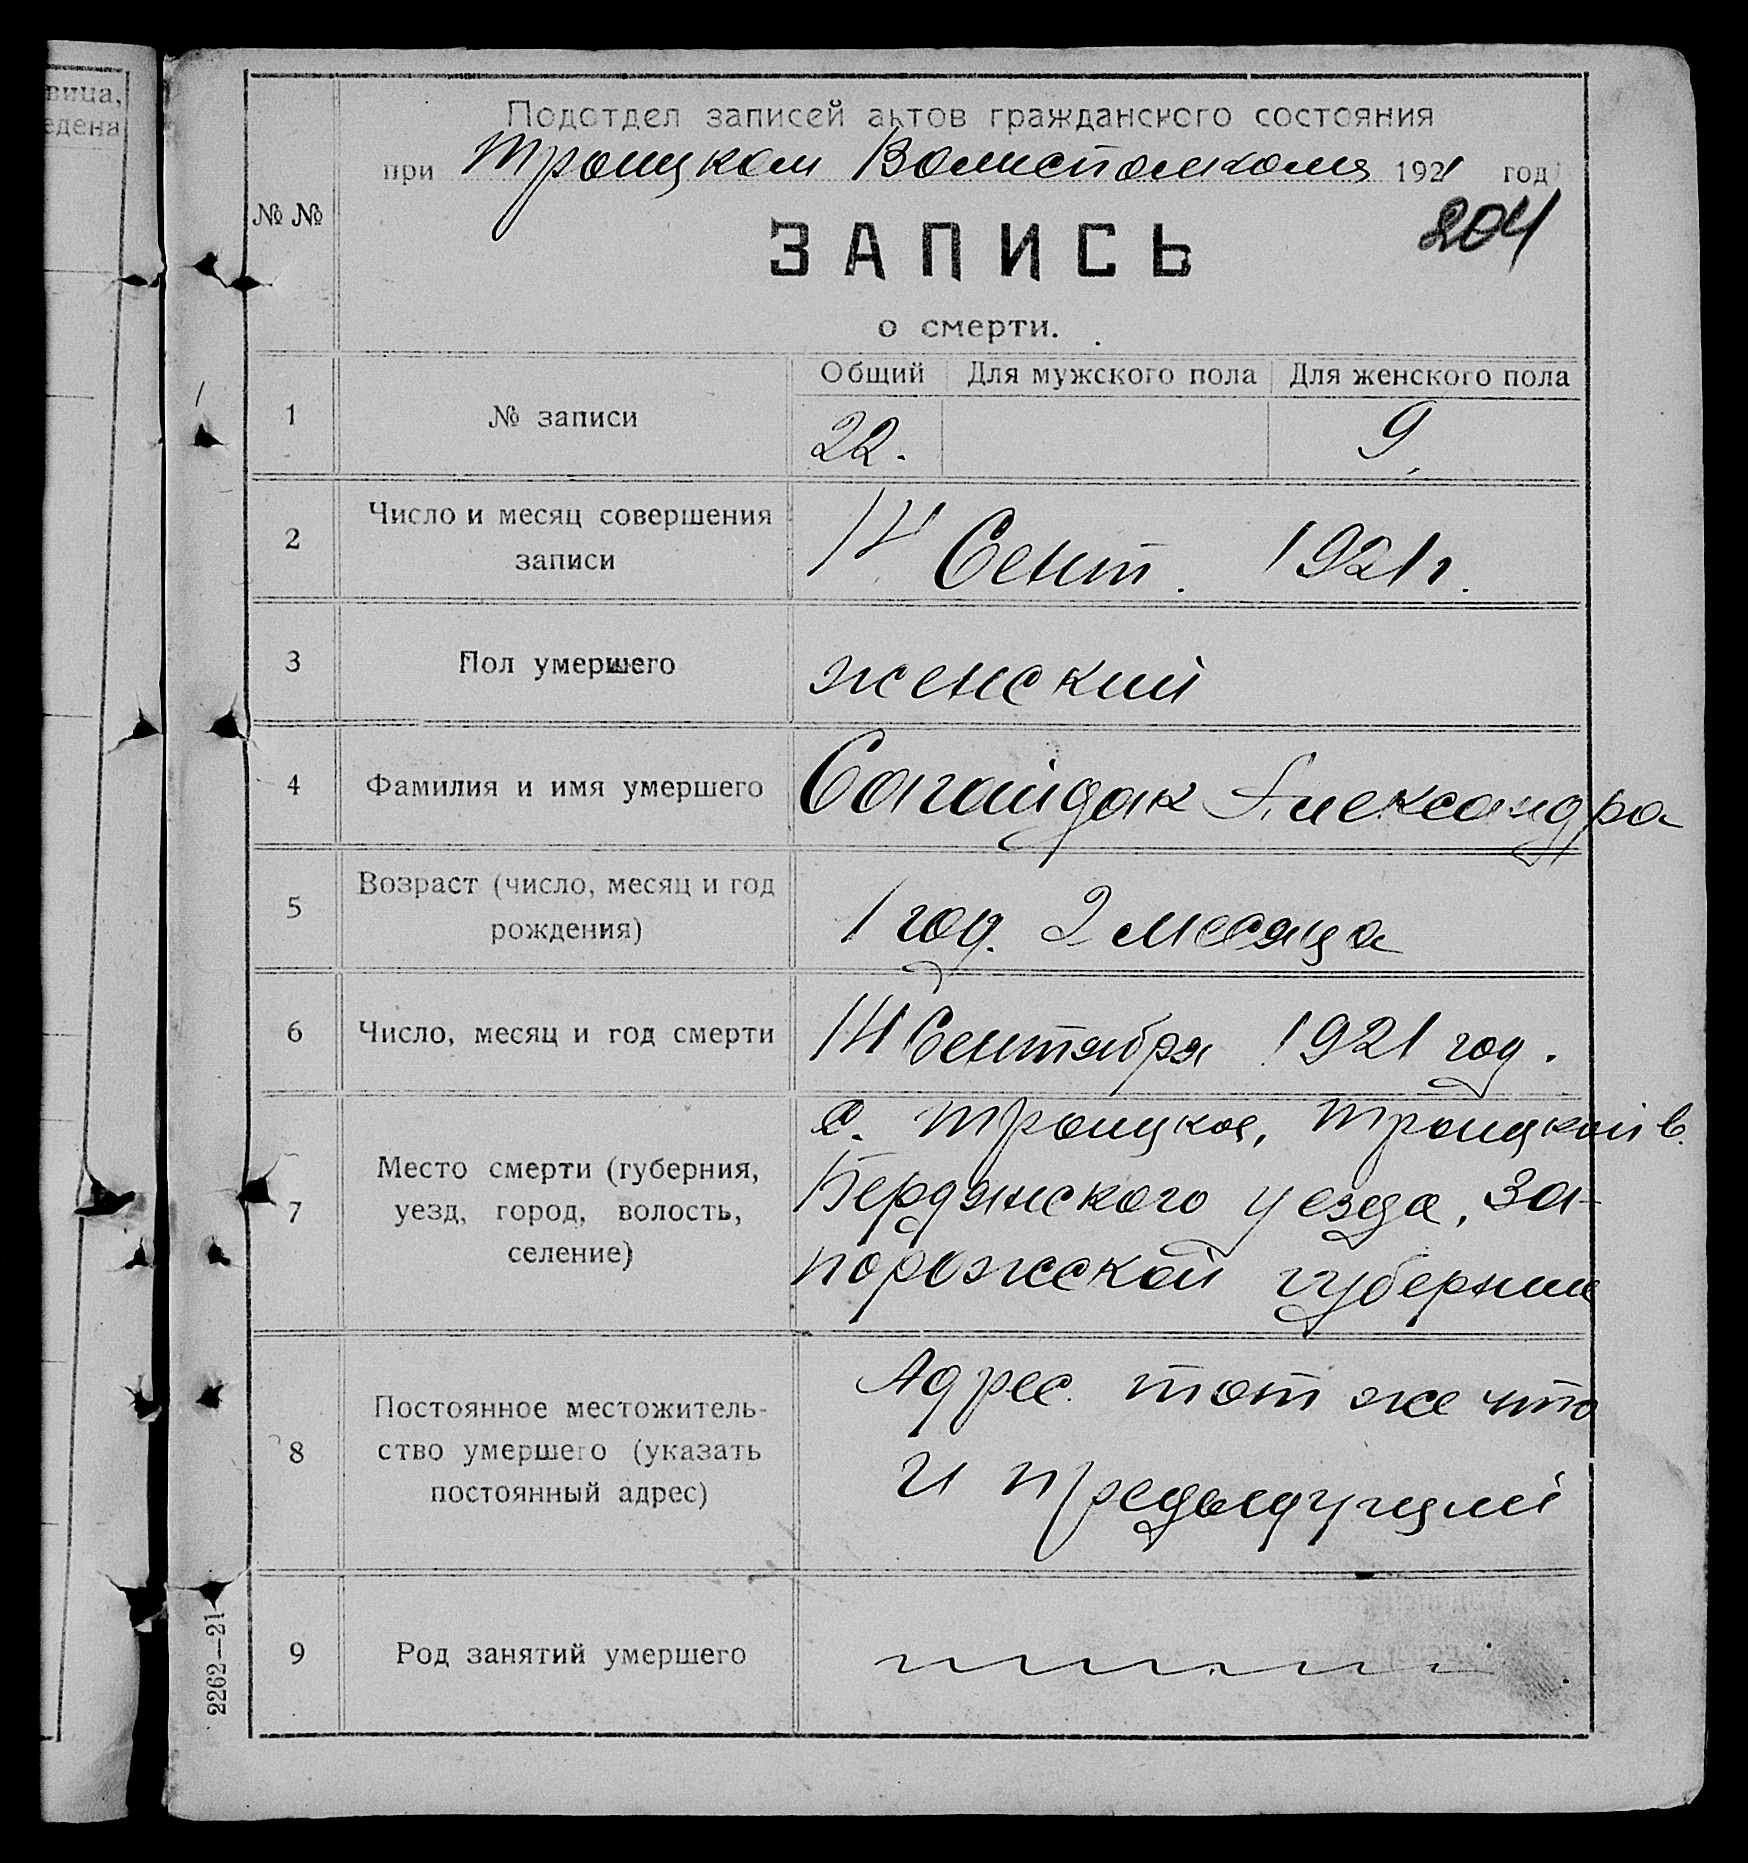 вица,
едена
Подотдел записей актов гражданского состояния
при Троицком Волисполкоме 1921 год
204
№ №
ЗАПИСЬ
о смерти.
Общий Для мужского пола Для женского пола
1 № записи 22. 9.
2 Число и месяц совершения
записи
14 Сент. 1921 г.
3 Пол умершего женский
4 Фамилия и имя умершего Согайдак Александра
5 Возраст (число, месяц и год
рождения)
1 год. 2 месяца
6 Число, месяц и год смерти 14 Сентября 1921 год.
7 Место смерти (губерния,
уезд, город, волость,
селение)
с. Троицкое, Троицкой в.
Бердянского уезда, За-
порожской губернии
8 Постоянное местожитель-
ство умершего (указать
постоянный адрес)
Адрес тот же что
и предыдущий
9 Род занятий умершего
2262—21